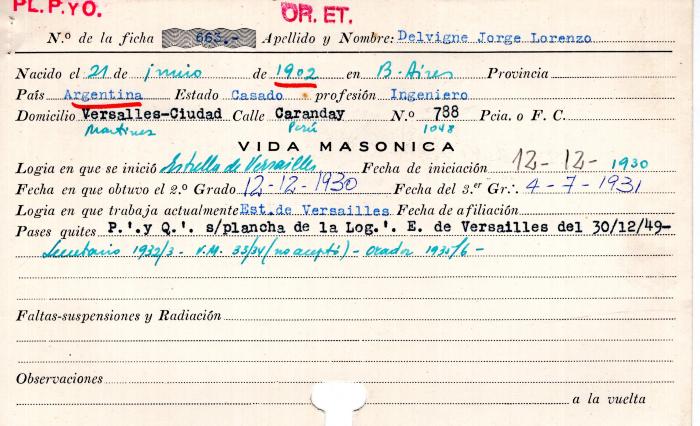 PL. P. yO. OR. ET.
N.º de la ficha 663.- Apellido y Nombre: Delvigne Jorge Lorenzo
Nacido el 21 de junio de 1902 en B. Aires Provincia
País Argentina Estado Casado profesión Ingeniero
Domicilio Versalles-Ciudad Calle Caranday N.º 788 Pcia. o F. C.
Martinez Perú 1048
VIDA MASONICA
Logia en que se inició Estrella de Versailles Fecha de iniciación 12-12-1930
Fecha en que obtuvo el 2.º Grado 12-12-1930 Fecha del 3.er Gr.·. 4-7-1931
Logia en que trabaja actualmente Est.de Versailles Fecha de afiliación
Pases quites P.'.y Q.'. s/plancha de la Log.'. E. de Versailles del 30/12/49-
Secretario 1932/3 - V.M. 33/34 (no aceptó) - Orador 1935/6 -
Faltas-suspensiones y Radiación
Observaciones
a la vuelta